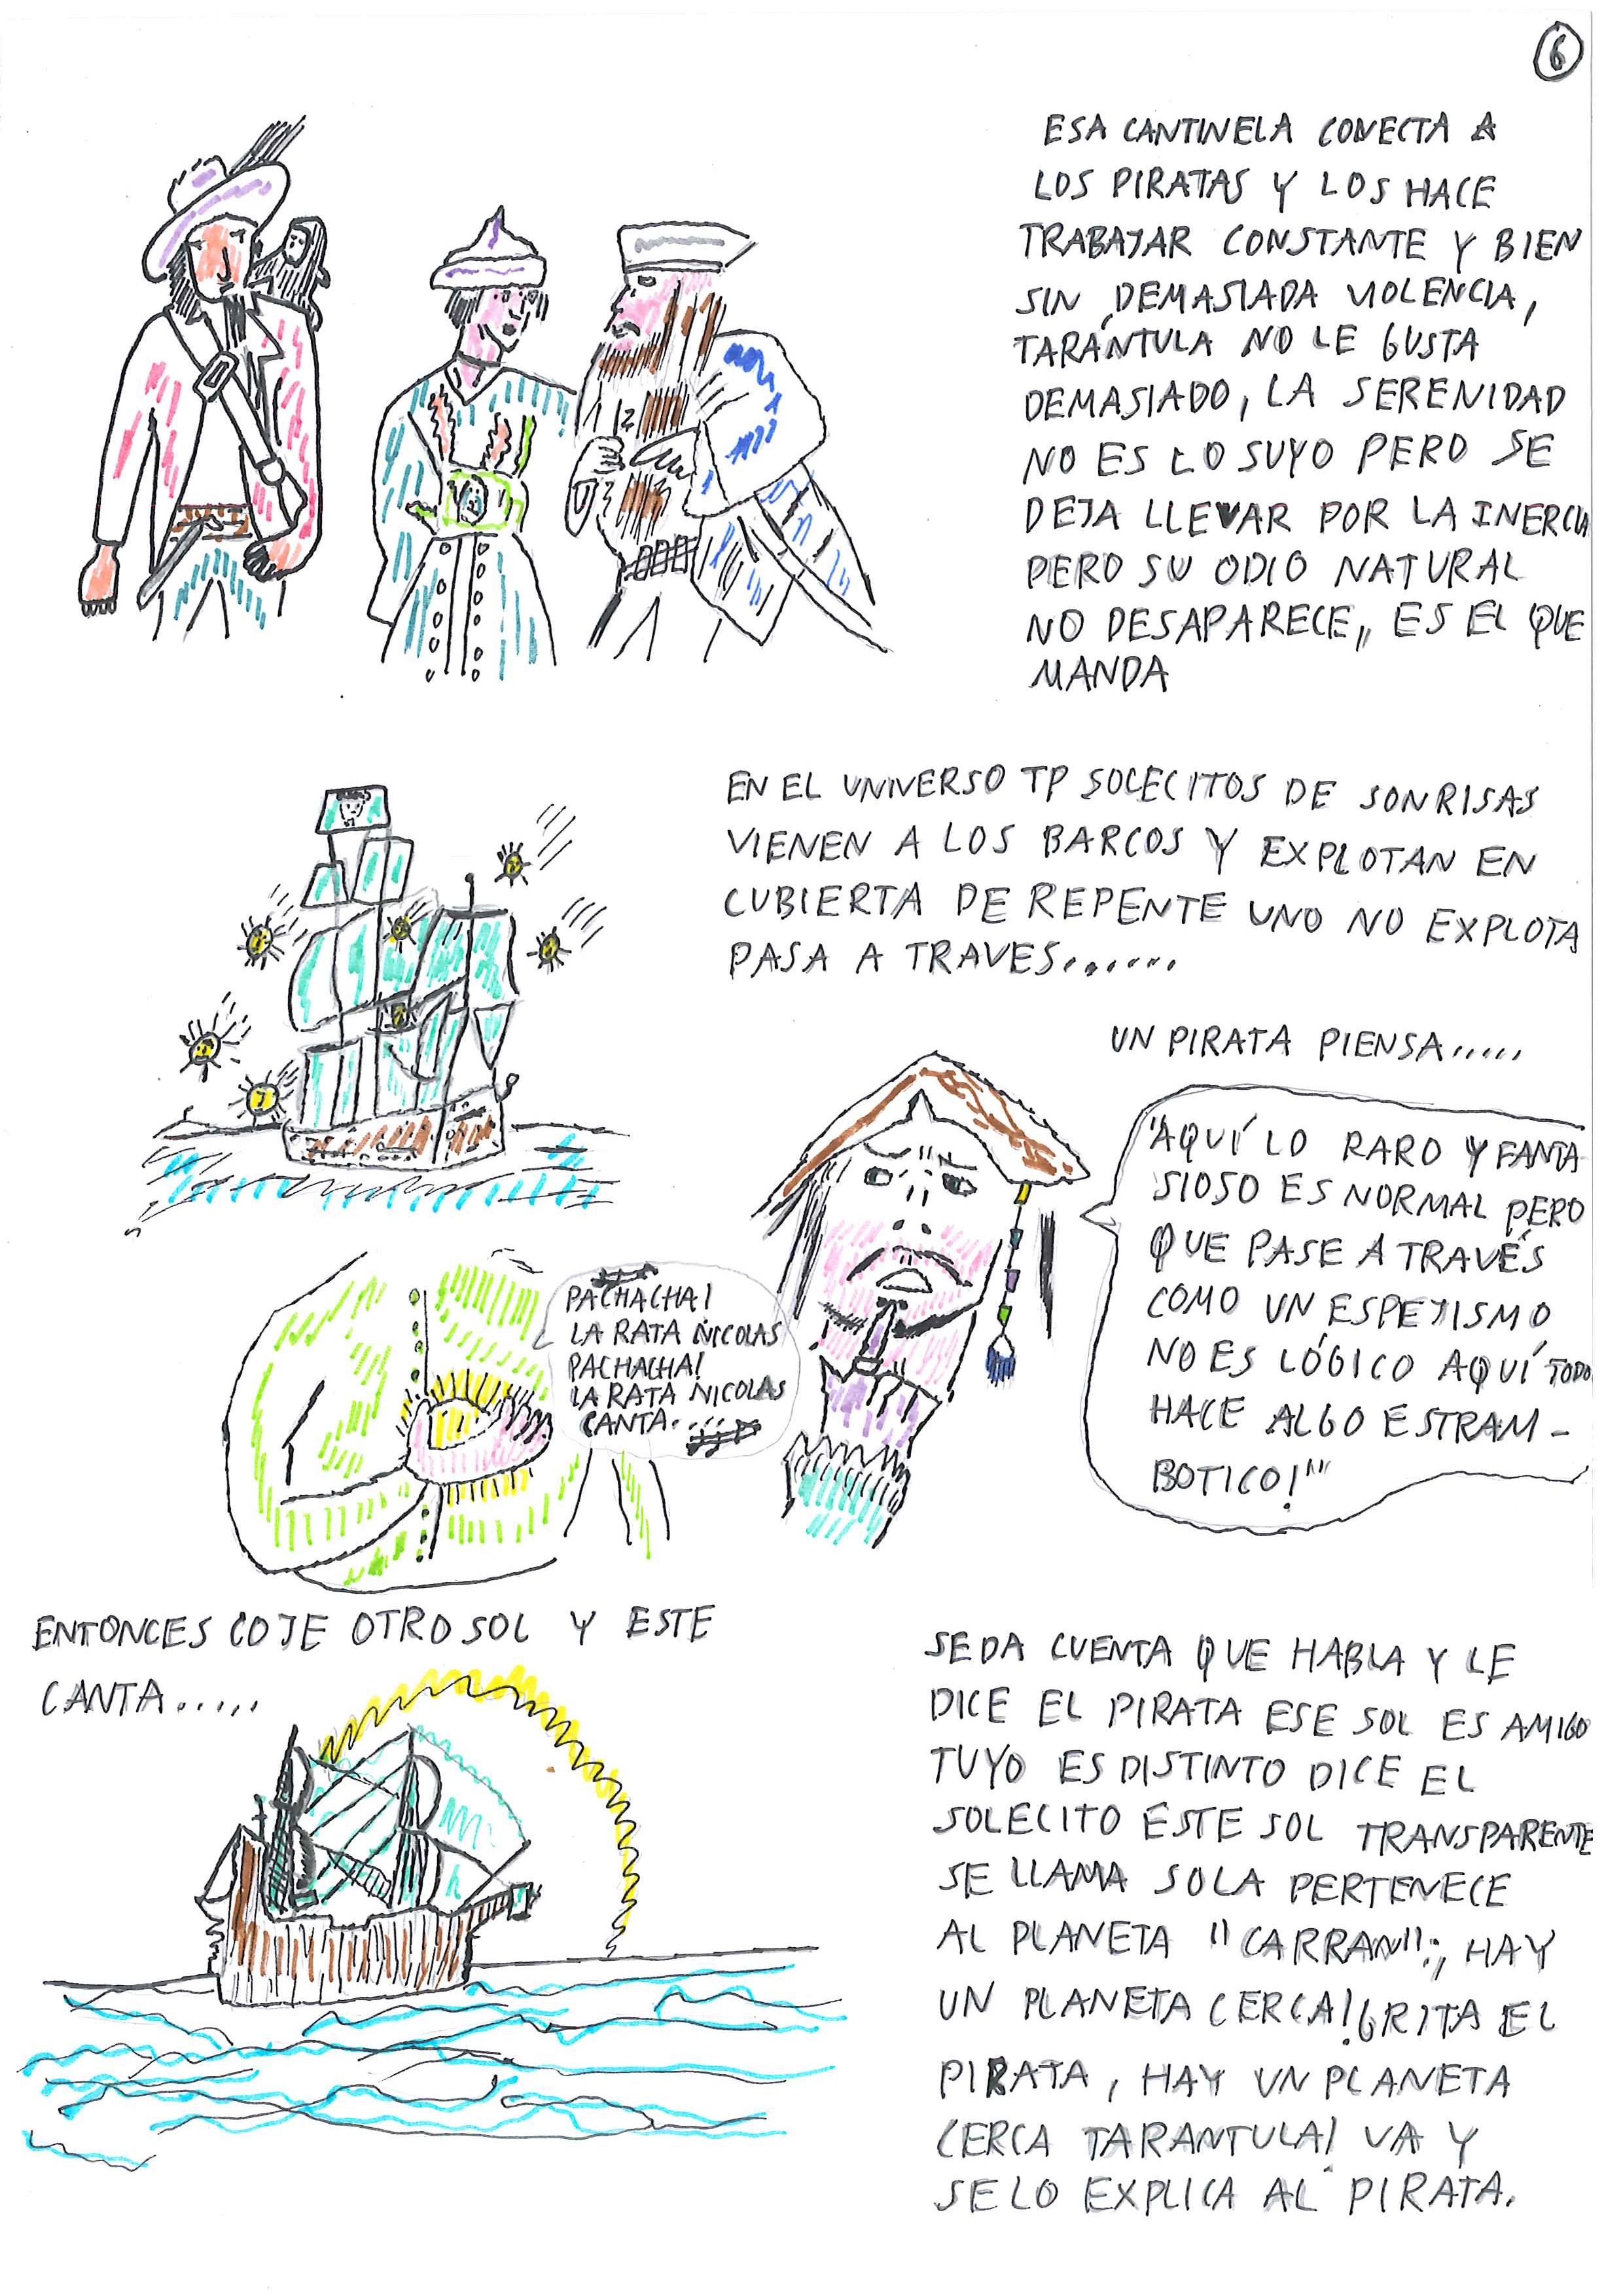 6
ESA CANTINELA CONECTA A
LOS PIRATAS Y LOS HACE
TRABAJAR CONSTANTE Y BIEN
SIN DEMASIADA VIOLENCIA,
TARÁNTULA NO LE GUSTA
DEMASIADO, LA SERENIDAD
NO ES LO SUYO PERO SE
DEJA LLEVAR POR LA INERCIA
PERO SU ODIO NATURAL
NO DESAPARECE,, ES EL QUE
MANDA
EN EL UNIVERSO TP SOLECITOS DE SONRISAS
VIENEN A LOS BARCOS Y EXPLOTAN EN
CUBIERTA DE REPENTE UNO NO EXPLOTA
PASA A TRAVES.......
UN PIRATA PIENSA.....
"AQUÍ LO RARO Y FANTA
SIOSO ES NORMAL PERO
QUE PASE A TRAVÉS
COMO UN ESPEJISMO
NO ES LÓGICO AQUÍ TODO
HACE ALGO ESTRAM-
BOTICO!"
PACHACHA!
LA RATA NICOLAS
PACHACHA!
LA RATA NICOLAS
CANTA.
ENTONCES COJE OTRO SOL Y ESTE
CANTA.....
SE DA CUENTA QUE HABLA Y LE
DICE EL PIRATA ESE SOL ES AMIGO
TUYO ES DISTINTO DICE EL
SOLECITO ESTE SOL TRANSPARENTE
SE LLAMA SOLA PERTENECE
AL PLANETA "CARRAN";, HAY
UN PLANETA CERCA! GRITA EL
PIRATA, HAY UN PLANETA
CERCA TARANTULA! VA Y
SE LO EXPLICA AL PIRATA.